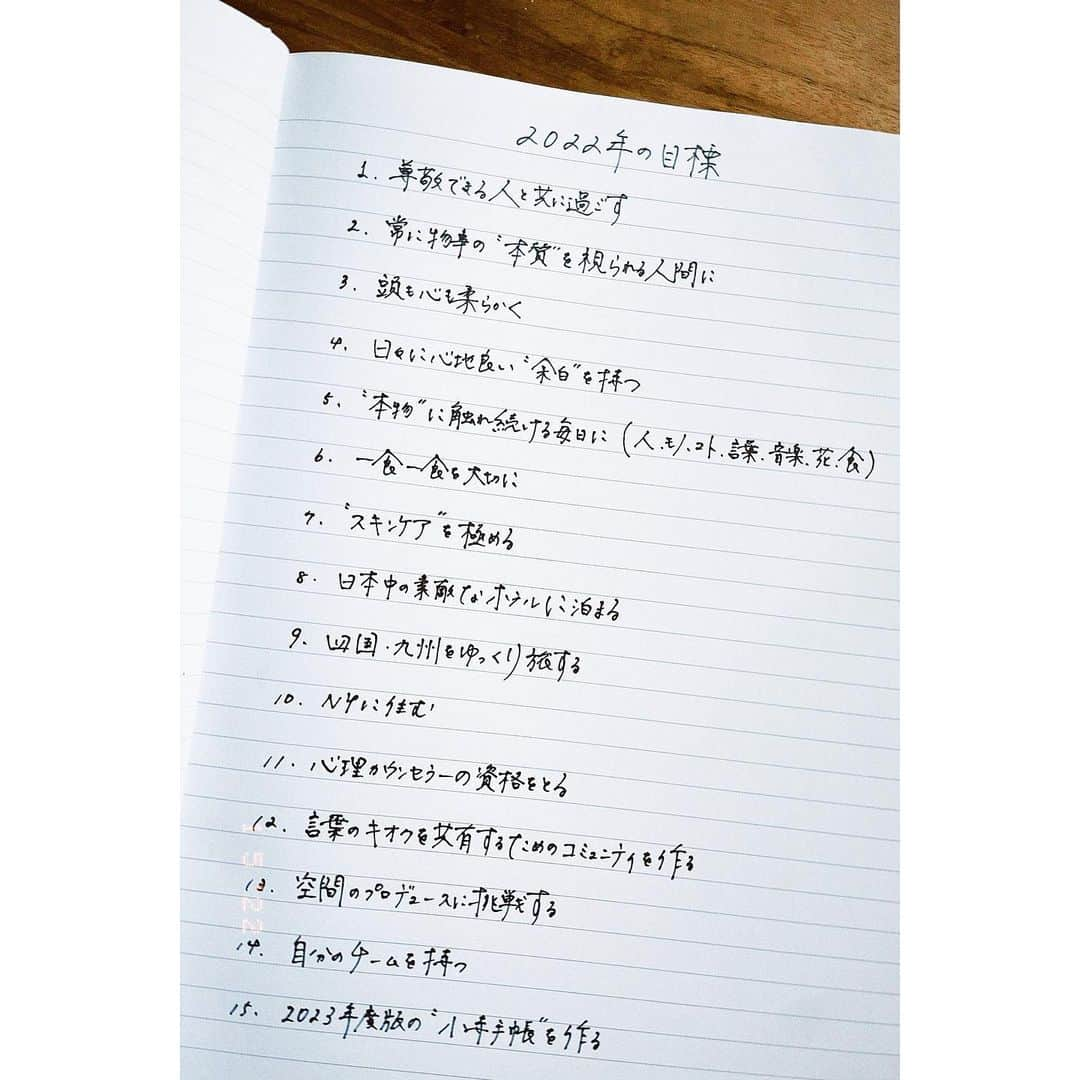 2022年の目標
1. 尊敬できる人と共に過ごす
2. 常に物事の"本質"を視られる人間に
3. 頭も心も柔らかく
4. 日々に心地良い"余白"を持つ
5. "本物"に触れ続ける毎日に(人、モノ、コト、言葉、音楽、花、食)
6. 一食一食を大切に
7. "スキンケア"を極める
8. 日本中の素敵なホテルに泊まる
9. 四国・九州をゆっくり旅する
10. NYに住む
11. 心理カウンセラーの資格をとる
12. 言葉のキオクを共有するためのコミュニティを作る
13. 空間のプロデュースに挑戦する
14. 自分のチームを持つ
15. 2023年度版の"小寿手帳"を作る